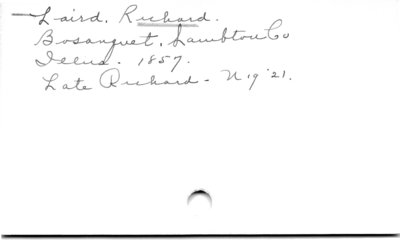 Laird, Richard.
Bosanquet, Lambton Co
Illus. 1857.
Late Richard - N 19 '21.